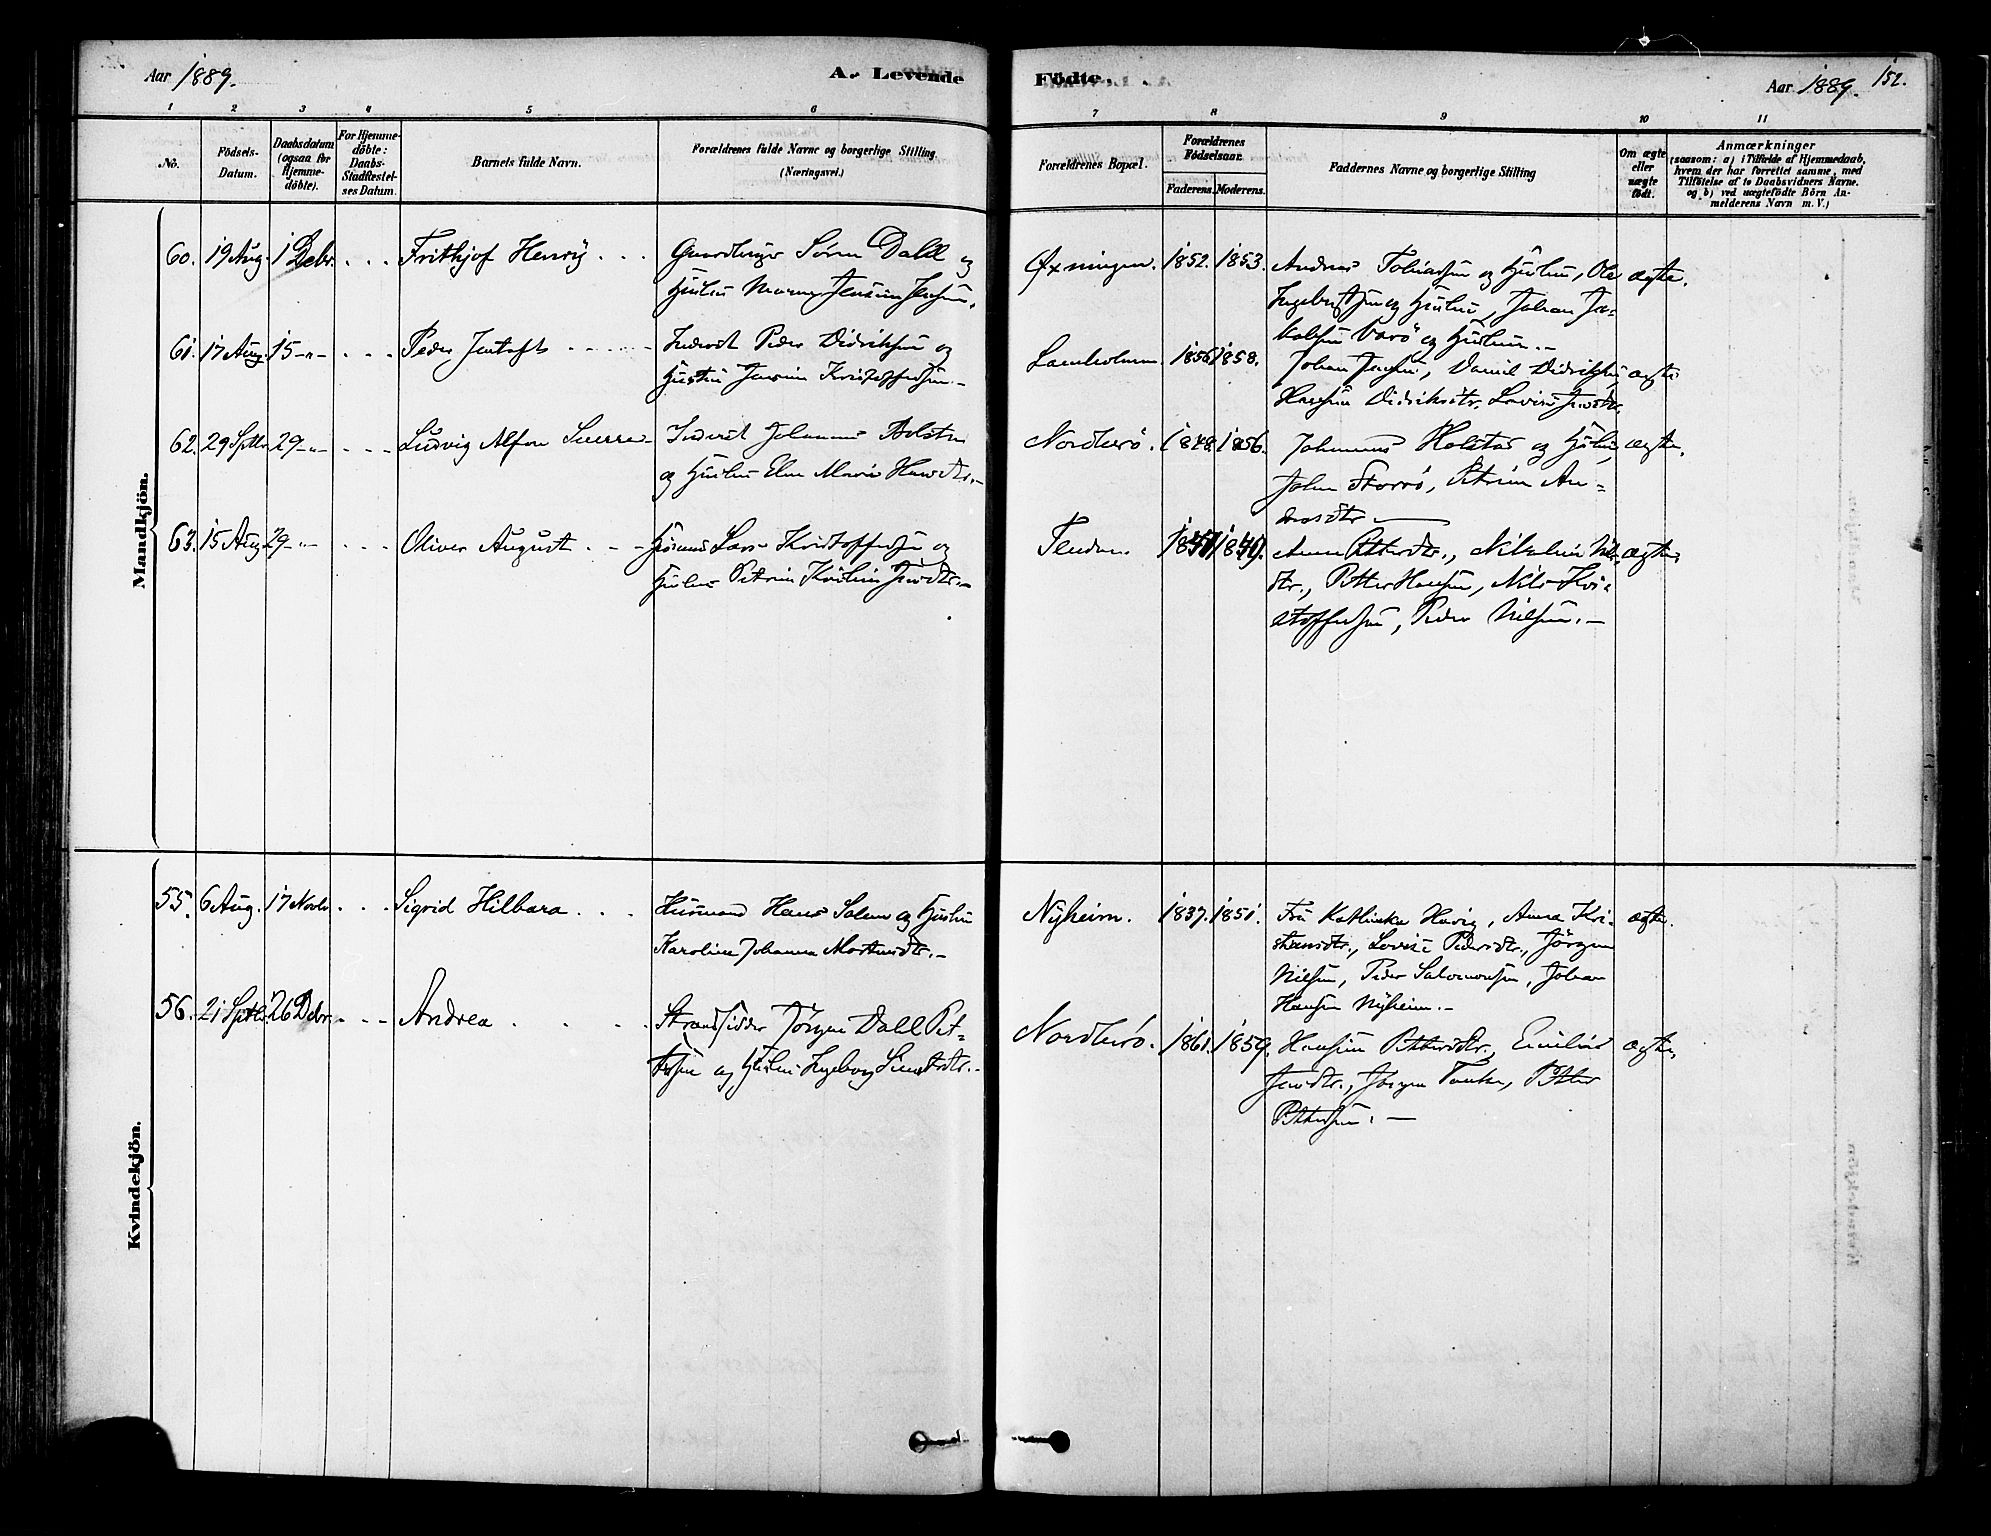 Aar 1889.
A. Levende
1
2
3
4
5
6
No.
Födsels-Datum.
Daabsdatum (ogsaa for Hjemme-döbte).
For Hjemme-döbte: Daabs-Stadfæstel-ses Datum.
Barnets fulde Navn.
Forældrenes fulde Navne og borgerlige Stilling
(Næringsvei.)
Mandkjön.
60. 19 Aug. 1 Debr. Frithjof Henry Søren Dall og
61. 17 Aug. 15 -"- Peder Jentoft Inderst Peder Didriksen og
Hustru Jensine Kristoffersen.-
62. 29 Septbr 29 -"- Ludvig Alfon Sverre Inderst Johannes
og Hustru Elen Marie Hansdtr.-
63. 15 Aug 29 -"- Oliver August Lars Kristoffersen og
Hustru Petrine Kristine Jensdtr.-
Kvindekjön.
55. 6 Aug. 17 Novb. Sigrid Hilbara Husmand Hans Salom og Hustru
Karoline Johanna Mortensdtr.-
56. 21 Septbr. 26 Debr. Andrea Strandsidder Jörgen Dall Pet-
tersen og Hustru Ingeborg
Födte.
Aar 1889. 152.
7
8
9
10
11
Forældrenes Bopæl.
Forældrenes Födselsaar.
Faderens. Moderens.
Faddernes Navne og borgerlige Stilling
Om ægte eller uægte födt.
Anmærkninger
(saasom: a) i Tilfælde af Hjemmedaab,
hvem der har forrettet samme, med
Tilföielse af to Daabsvidners Navne.
og b) ved uægtefödte Börn An-
melderens Navn m. V.)
Øxningen. 1852. 1853. Andreas Tobiassen og Hustru, Ole ægte.
Ingebrigtsen og Hustru, Johan Ja-
kobsen Varö og Hustru.-
1856 1858. Johan Jensen, Daniel Didriksen, ægte
Hansine Didriksdtr. Lovise Jensdtr.
Nordherö. 1848. 1856. Johannes Holstad og Hustru, ægte.
Johan Storrö, Petrine An-
dreasdtr
1849. Anne Pettersdtr., Nikoline Nils- ægte
dtr., Petter Hansen, Nils Kri-
stoffersen, Peder Nilsen.-
Nyheim. 1837. 1851. Fru Kathinka Havig, Anna Kri- ægte.
stensdtr., Lovise Pedersdtr., Jörgen
Nilsen, Peder Salomonsen, Johan
Hansen Nyheim.-
Nordherö. 1861. 1859. Hansine Pettersdtr., Emilie ægte.
Jensdtr., Jörgen Petter
Pettersen.-